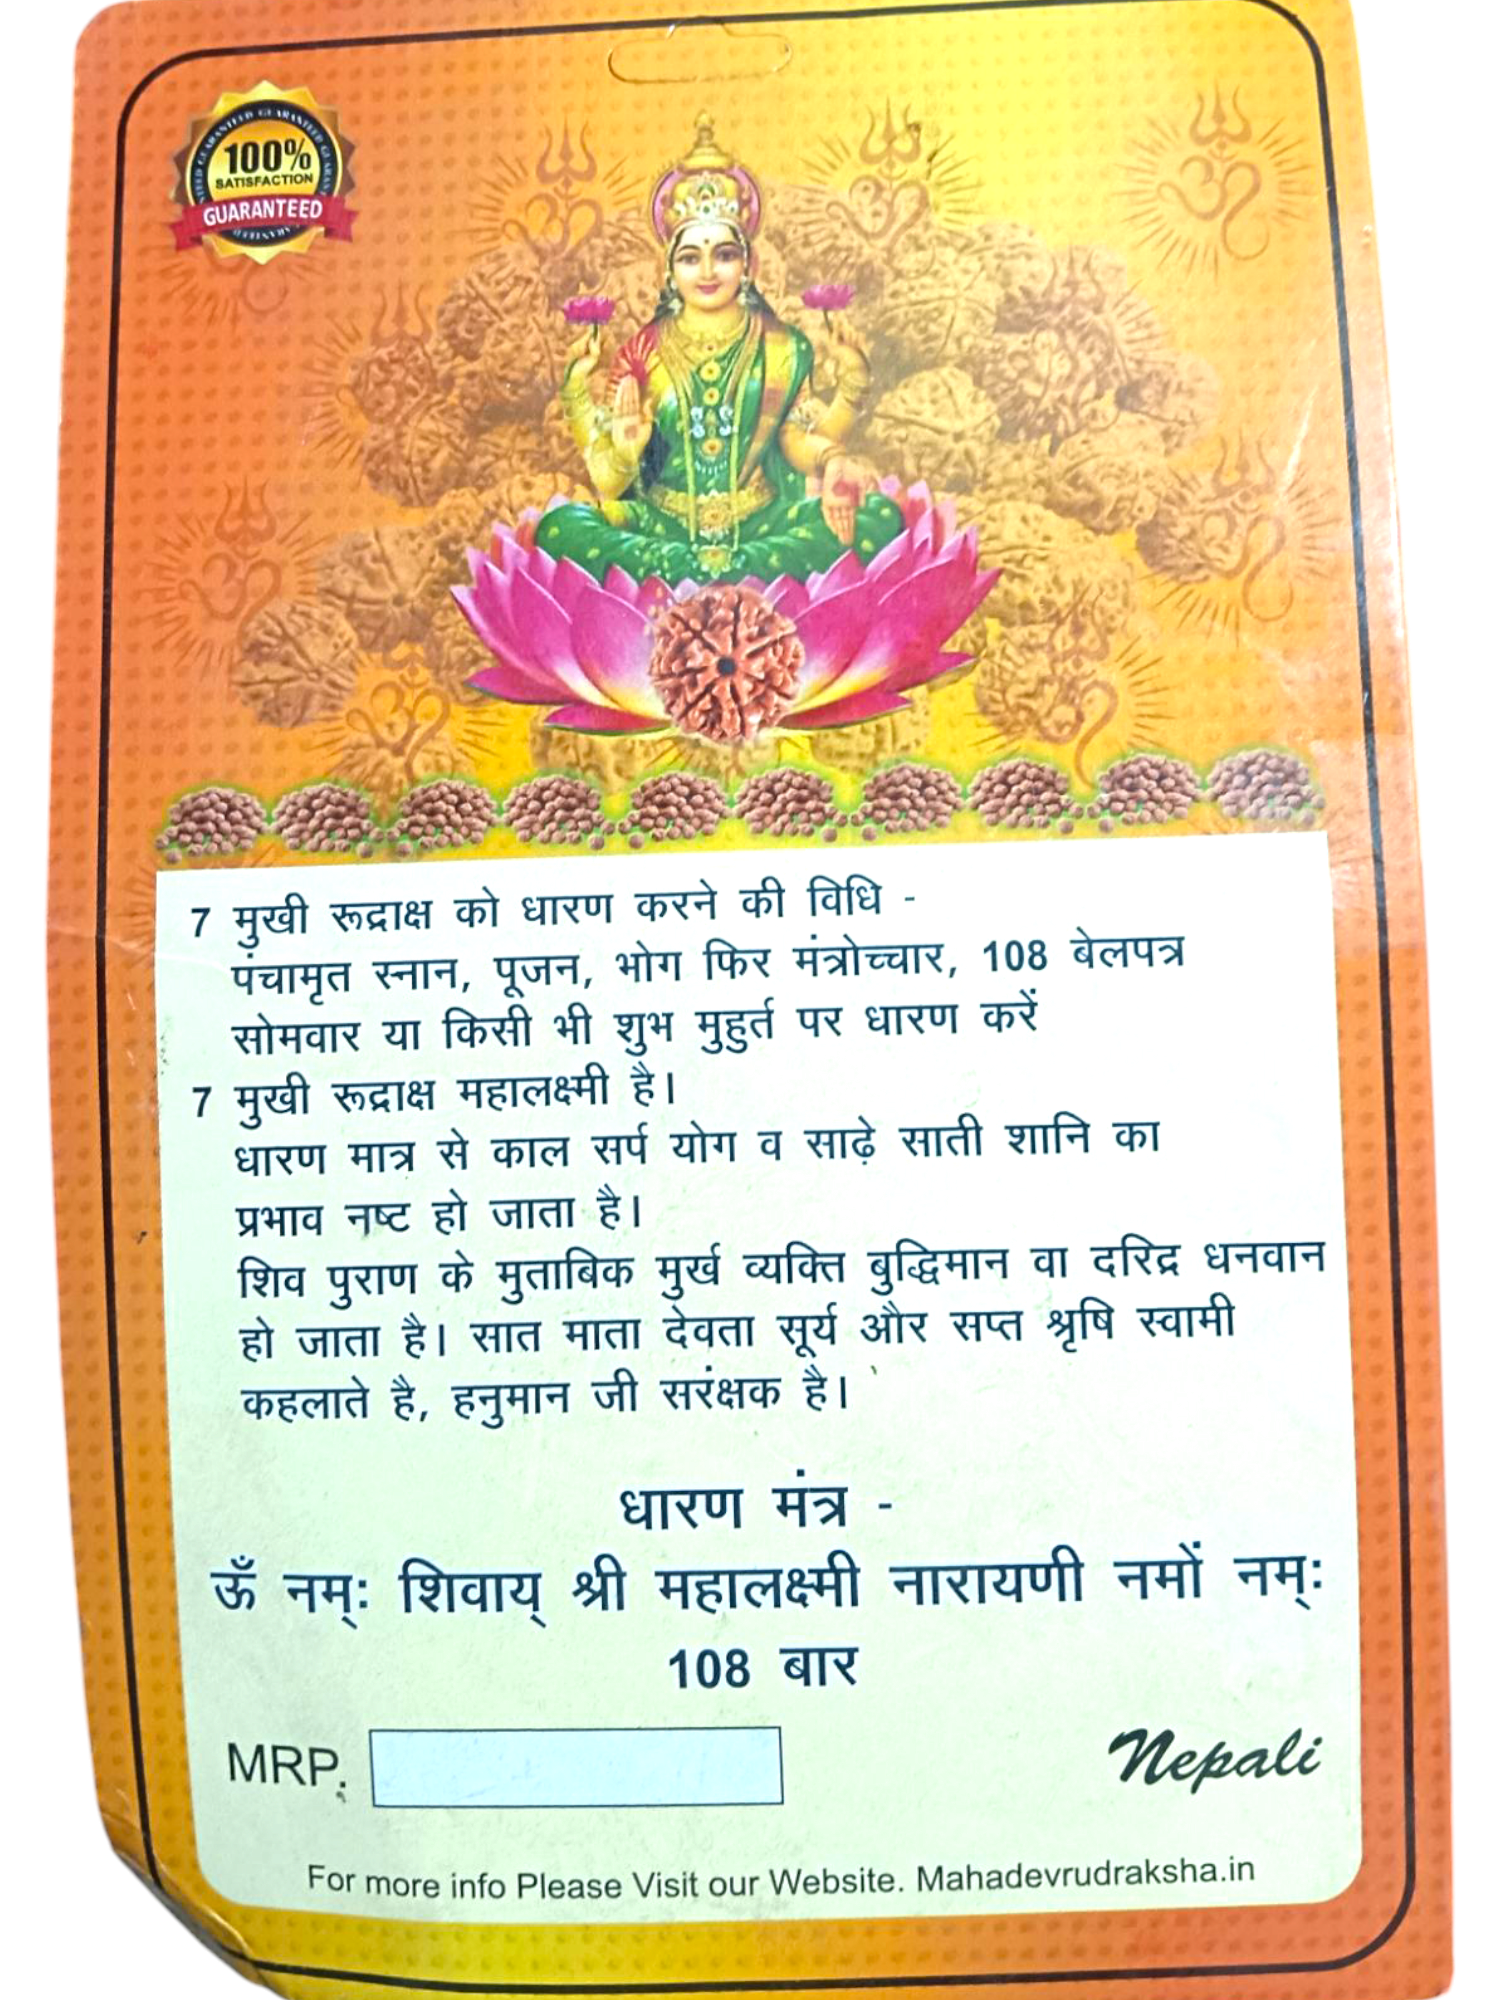 100%
SATISFACTION
GUARANTEED
7 मुखी रूद्राक्ष को धारण करने की विधि -
पंचामृत स्नान, पूजन, भोग फिर मंत्रोच्चार, 108 बेलपत्र
सोमवार या किसी भी शुभ मुहुर्त पर धारण करें
7 मुखी रूद्राक्ष महालक्ष्मी है।
धारण मात्र से काल सर्प योग व साढ़े साती शानि का
प्रभाव नष्ट हो जाता है।
शिव पुराण के मुताबिक मुर्ख व्यक्ति बुद्धिमान वा दरिद्र धनवान
हो जाता है। सात माता देवता सूर्य और सप्त श्रृषि स्वामी
कहलाते है, हनुमान जी सरंक्षक है।
धारण मंत्र -
ऊँ नम्ः शिवाय् श्री महालक्ष्मी नारायणी नमों नम्ः
108 बार
MRP.
Nepali
For more info Please Visit our Website. Mahadevrudraksha.in